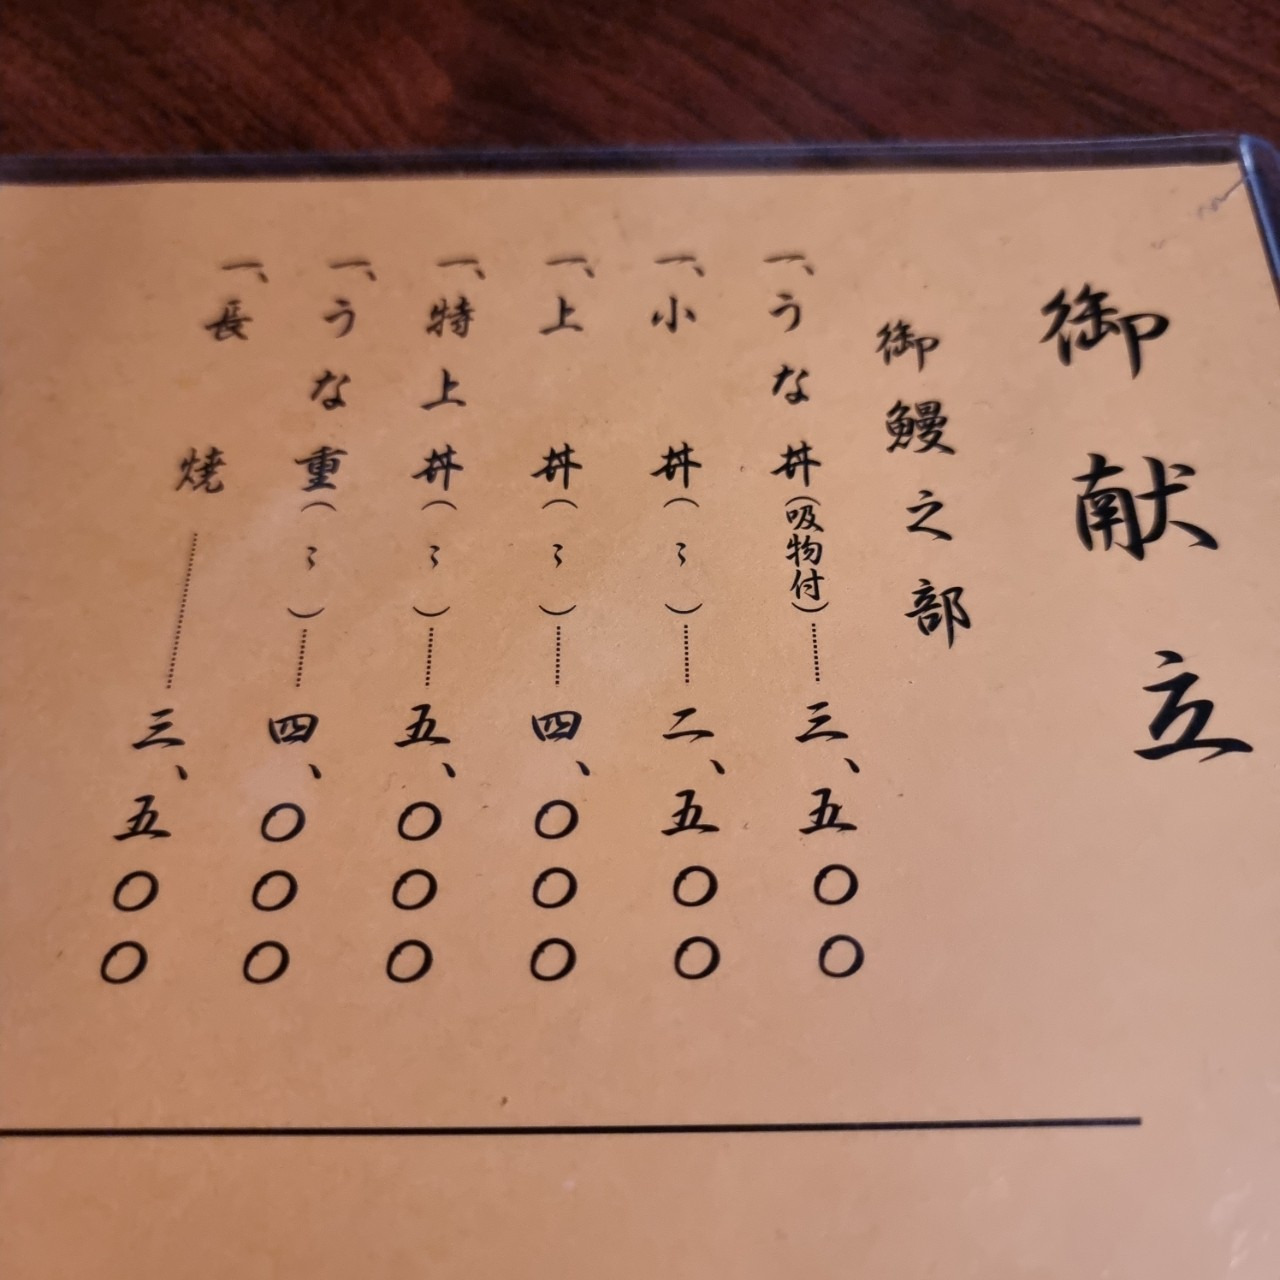 御献立
御鰻之部
一、うな丼(吸物付)……三、五〇〇
一、小丼(〻)……二、五〇〇
一、上丼(〻)……四、〇〇〇
一、特上丼(〻)……五、〇〇〇
一、うな重(〻)……四、〇〇〇
一、長焼……三、五〇〇